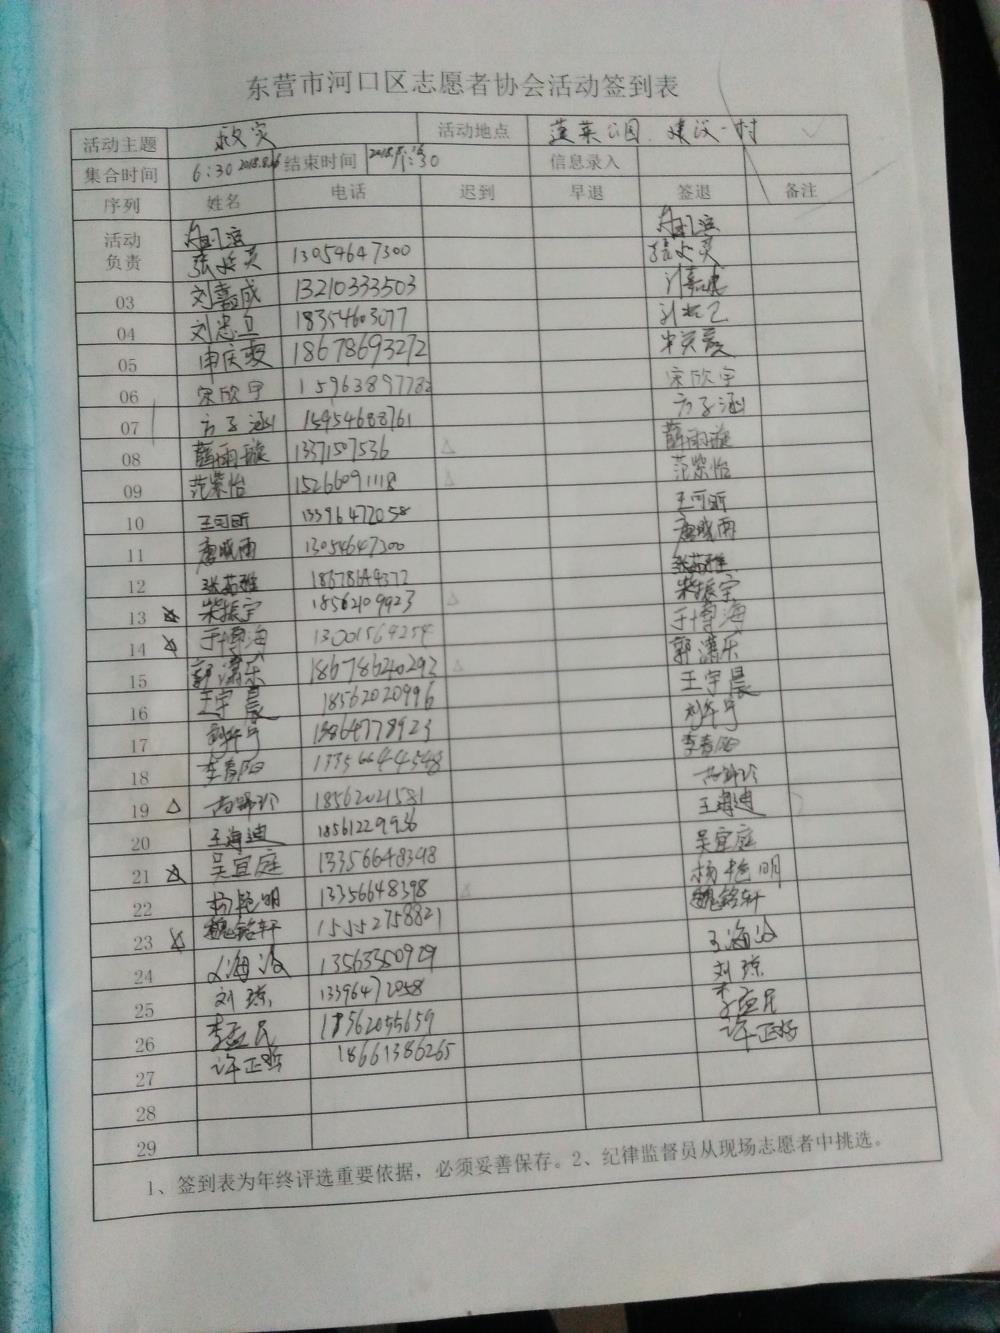 东营市河口区志愿者协会活动签到表
活动主题 救灾 活动地点 蓬莱公园、建设一村
集合时间 6:30 结束时间 信息录入
序列 姓名 电话 迟到 早退 签退 备注
活动
负责
13054647300
03 刘嘉成 13210333503
04 刘忠卫 18354603077
05 申庆霞 18678693272
06 宋欣宇 15963897782 宋欣宇
07 方子涵 15954688761 方子涵
08 薛雨璇 13371507536 △ 薛雨璇
09 范紫怡 15266091118 △ 范紫怡
10 王可昕 13396472058 王可昕
11 唐晓雨 13054647300 唐晓雨
12 张茹雅 张茹雅
13 ☆ 柴振宇 18562109923 △ 柴振宇
14 ☆ 于博海 13001564254 于博海
15 郭潇乐 18678640293 △ 郭潇乐
16 王宇晨 18562020996 王宇晨
17 13864778923
18 李春阳 李春阳
19 △ 18562021581
20 王海迪 18561229936 王海迪
21 ☆ 吴宜庭 13356648398 吴宜庭
22 杨艳明 13356648398 △ 杨艳明
23 ☆ 魏铭轩 15552758821 魏铭轩
24 王海波 13563350929 王海波
25 刘琼 13396472058 刘琼
26 李孟民 18562055659 李孟民
27 18661386265
28
29
1、签到表为年终评选重要依据，必须妥善保存。2、纪律监督员从现场志愿者中挑选。